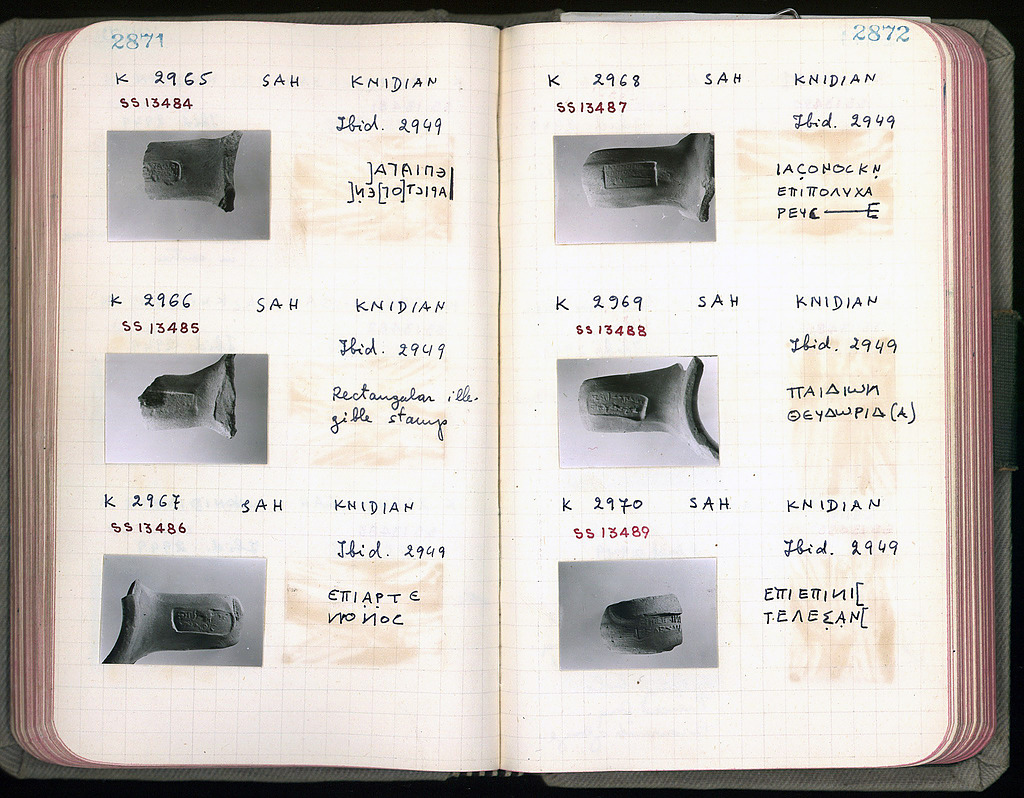 2871
K 2965 SAH KNIDIAN
SS 13484
Ibid. 2949
]ΑΤΑΙΠЭ
]И̣Э[ΙΟ]ΤЭΙΡΑ
K 2966 SAH KNIDIAN
SS 13485
Ibid. 2949
Rectangular ille-
gible stamp
K 2967 SAH KNIDIAN
SS 13486
Ibid. 2949
ΕΠΙΑ̣ΡΤΕ
ΝΟΝΟС
2872
K 2968 SAH KNIDIAN
SS 13487
Ibid. 2949
ΙΑС̣ΟΝΟСΚΝ̣
ΕΠΙΠΟΛΥΧΑ
ΡΕΥС
K 2969 SAH KNIDIAN
SS 13488
Ibid. 2949
ΠΑΙΔΙΩΝ
ΘΕΥΔΩΡΙΔ(Α)
K 2970 SAH KNIDIAN
SS 13489
Ibid. 2949
ΕΠΙΕΠΙΝΙ[
ΤΕΛΕΣ̣ΑΝ̣[